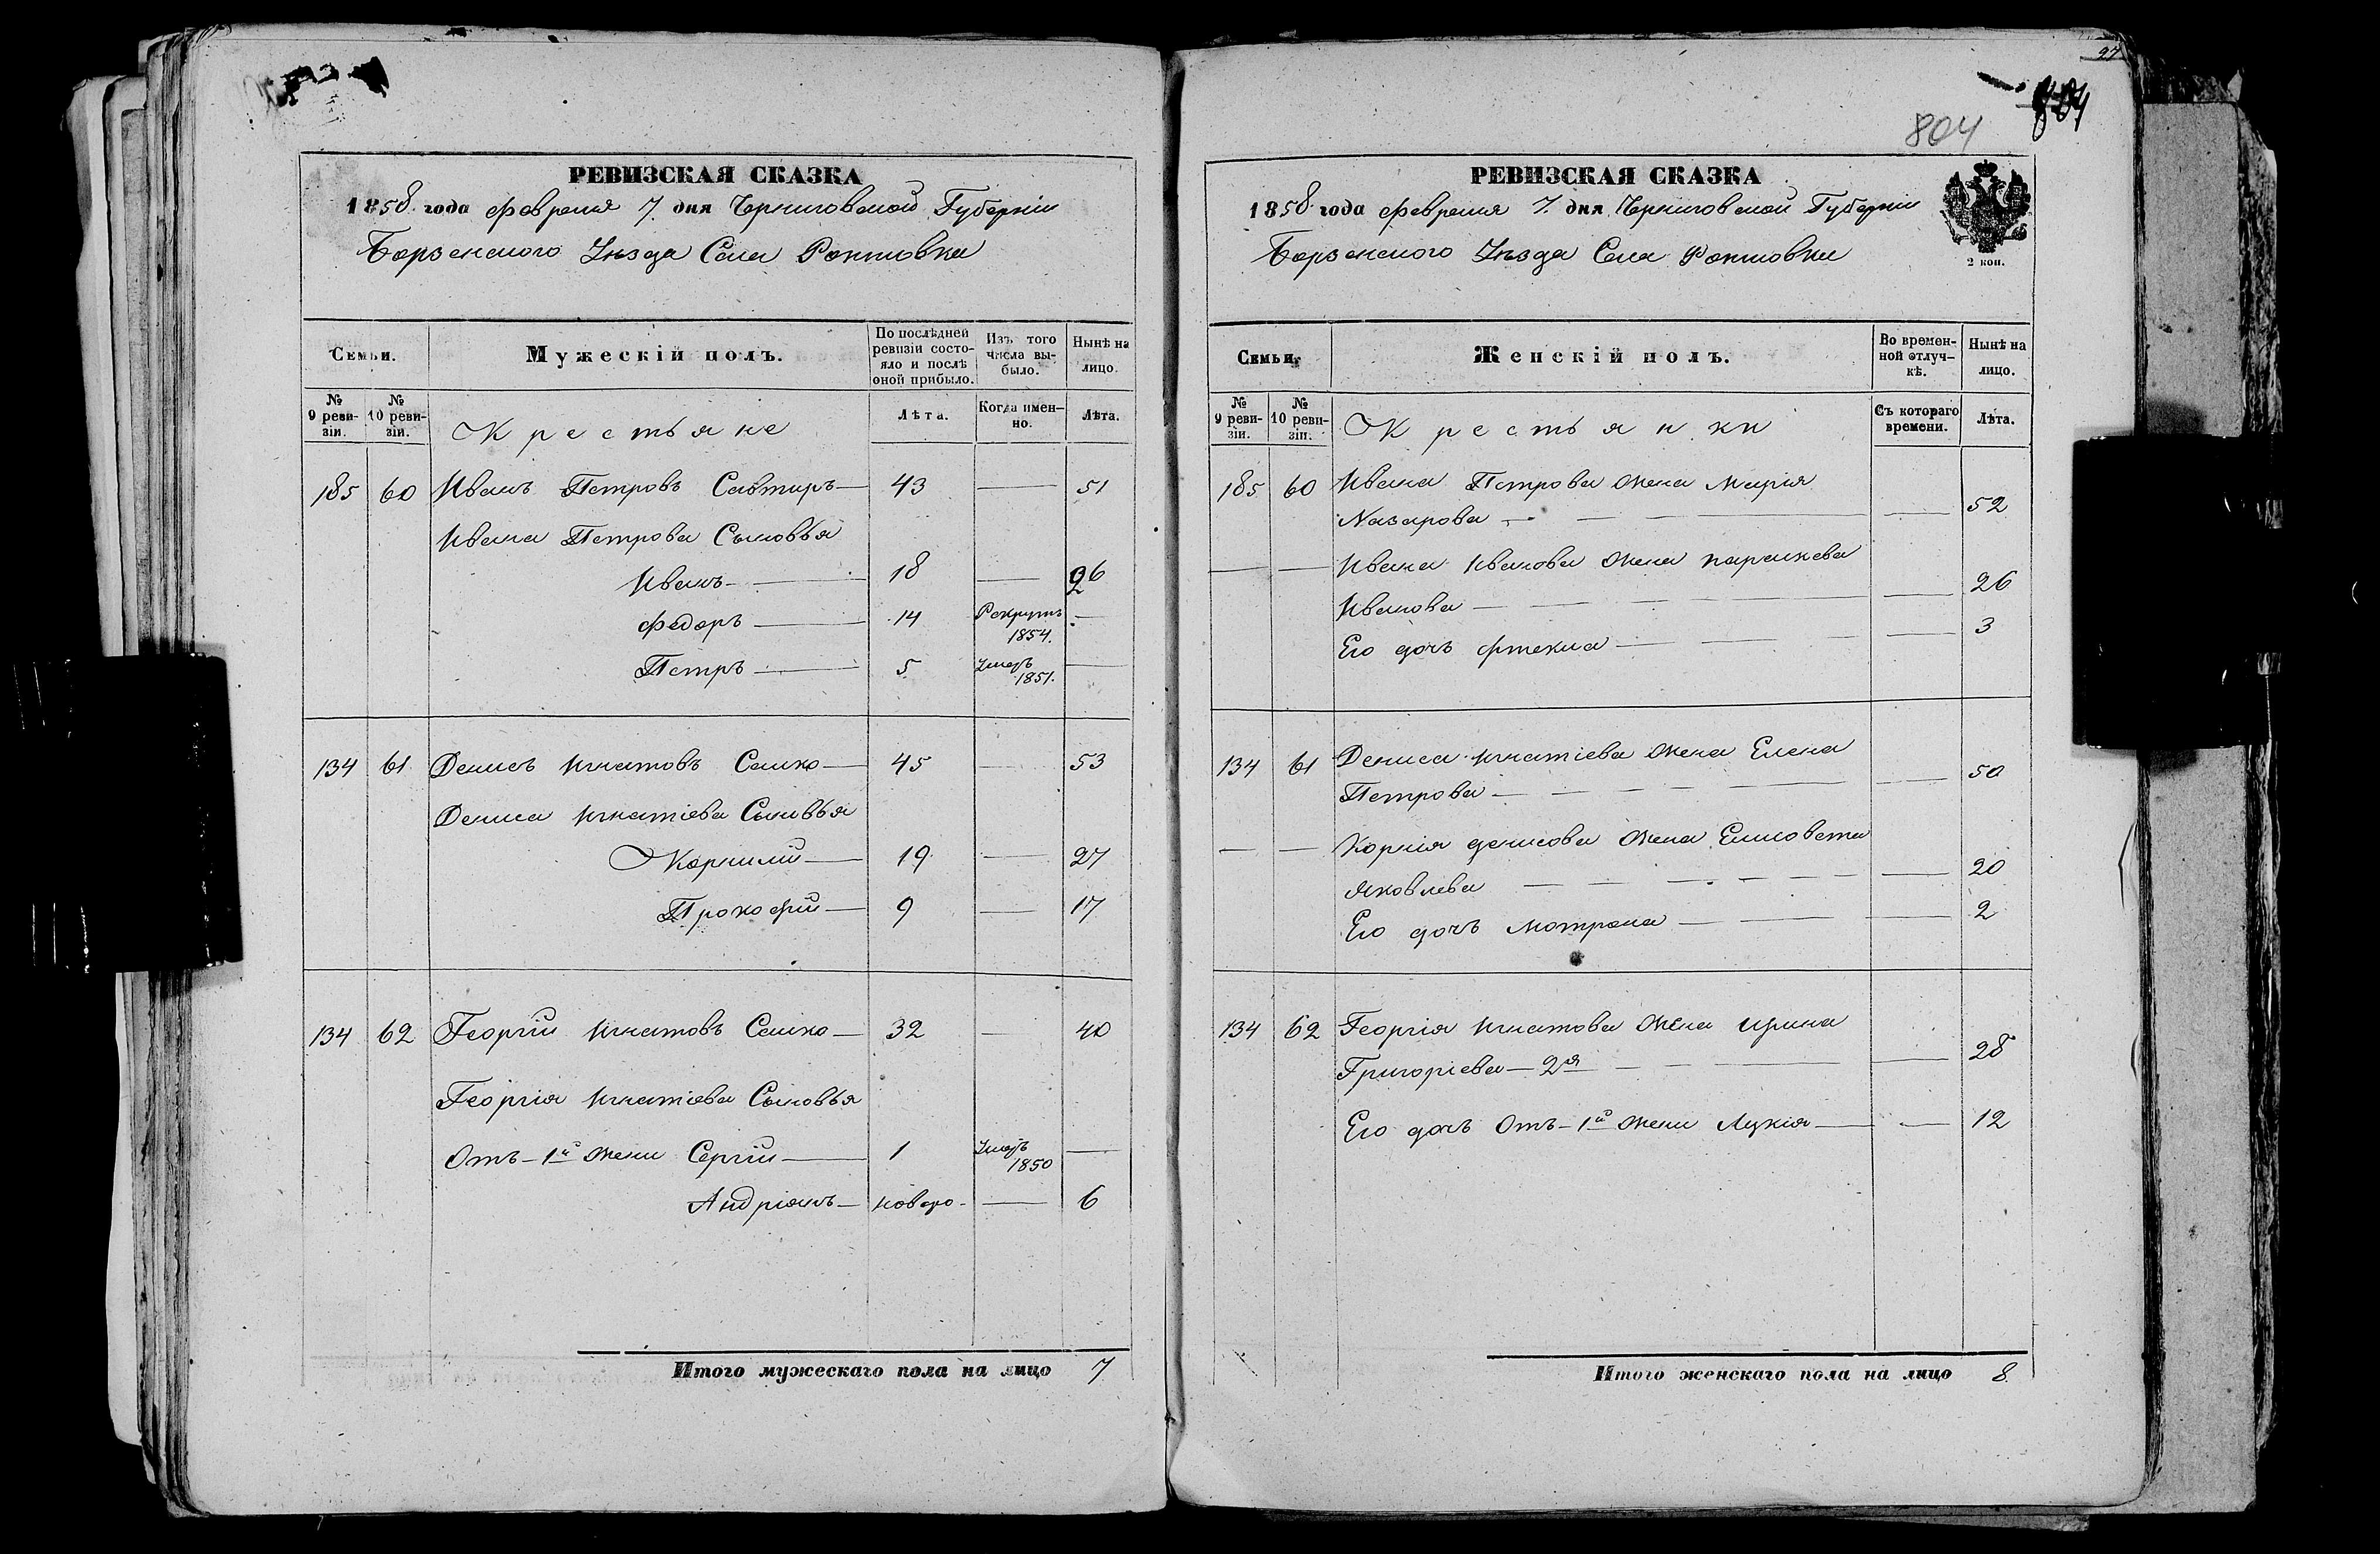 РЕВИЗСКАЯ СКАЗКА
1858 года февраля 7. дня Черниговской Губерніи
Борзенского Уѣзда Села
Семьи.
Мужескій полъ.
По послѣдней ревизіи состояло и послѣ оной прибыло.
Изъ того числа выбыло.
Нынѣ на лицо.
№ 9 ревизіи.
№ 10 ревизіи.
Крестьяне
Лѣта.
Когда именно.
Лѣта.
185 60 Иванъ Петровъ — 43 — 51
Ивана Петрова Сыновья
Иванъ — 18 — 26
Федоръ — 14 Рекрутъ 1854. —
Петръ — 5 Умеръ 1851. —
134 61 Денисъ Игнатовъ Сашко — 45 — 53
Дениса Игнатіева Сыновья
Корнилій — 19 — 27
Прокофій — 9 — 17
134 62 Георгій Игнатовъ Сашко — 32 — 40
Георгія Игнатіева Сыновья
Отъ - 1й жени Сергій — 1 Умеръ 1850 —
Андріянъ — новоро- — 6
Итого мужескаго пола на лицо 7
27
804
РЕВИЗСКАЯ СКАЗКА
1858 года февраля 7. дня Черниговской Губерніи
Борзенского Уѣзда Села
2 коп.
Семьи.
Женскій полъ.
Во временной отлучкѣ.
Нынѣ на лицо.
№ 9 ревизіи.
№ 10 ревизіи.
Крестьянки
Съ котораго времени.
Лѣта.
185 60 Ивана Петрова жена Марія
Назарова — — 52
— — Ивана Иванова жена параскева
Иванова — — 26
Его дочь — — 3
134 61 Дениса Игнатіева жена Елена
Петрова — — 50
— — Корнія денисова жена Елисовета
Яковлева — — 20
Его дочь Мотрона — — 2
134 62 Георгія Игнатова жена ирина
Григоріева — 2я — — 28
Его дочь Отъ - 1й жени Лукія — — 12
Итого женскаго пола на лицо 8.